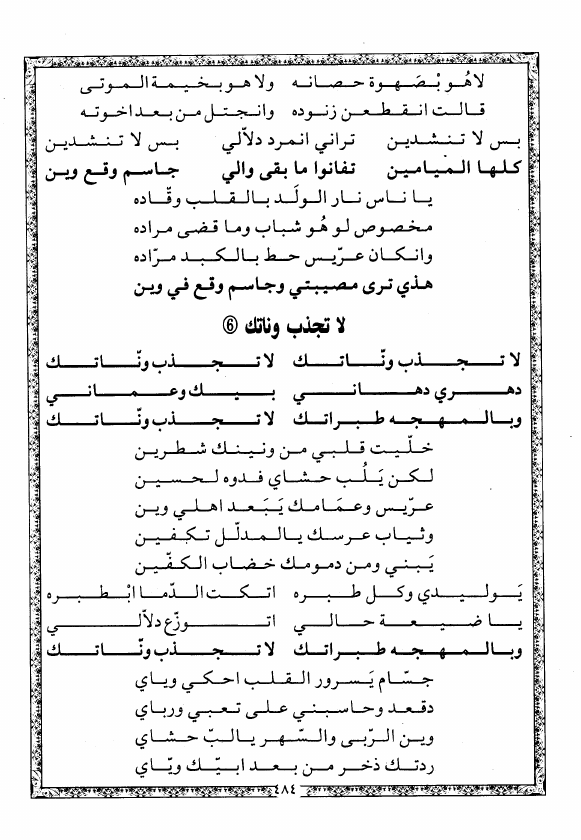 لاهُو بْصَهوة حصانه ولا هو بخيمة الموتى
قالت انقطعن زنوده وانجتل من بعد اخوته
بس لا تنشدين تراني انمرد دلاّلي بس لا تنشدين
كلها الميامين تفانوا ما بقى والي جاسم وقع وين
يا ناس نار الولَد بالقلب وقّاده
مخصوص لو هُو شباب وما قضى مراده
وانكان عرّيس حط بالكبد مرّاده
هذي ترى مصيبتي وجاسم وقع في وين
لا تجذب وناتك ⑥
لا تجذب ونّاتك لا تجذب ونّاتك
دهري دهاني بيك وعماني
وبالمهجه طبراتك لا تجذب ونّاتك
خلّيت قلبي من ونينك شطرين
لكن يَلُب حشاي فدوه لحسين
عرّيس وعمّامك يَبَعد اهلي وين
وثياب عرسك يالمدلّل تكفين
يَبني ومن دمومك خضاب الكفّين
يَوليدي وكل طبره اتكت الدّما ابْطبره
يا ضيعة حالي اتوزّع دلاّلي
وبالمهجه طبراتك لا تجذب ونّاتك
جسّام يَسرور القلب احكي وياي
دقعد وحاسبني على تعبي ورباي
وين الرّبى والسّهر يالبّ حشاي
ردتك ذخر من بعد ابيّك ويّاي
٤٨٤